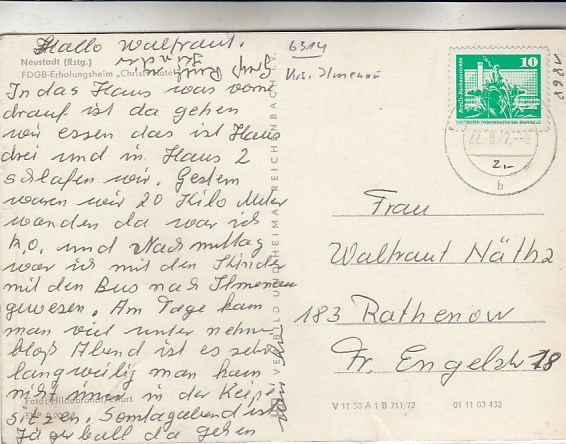 Hallo Waltraut.
Neustadt (Rstg.)
FDGB-Erholungsheim „
In das Haus was vorne
drauf ist da gehen
wir essen das ist Haus
drei und in Haus 2
schlafen wir. Gestern
waren wir 20 Kilo Meter
wandern da war ich
k.o. und Nachmittag
war ich mit den Kinder
mit den Bus nach Ilmenau
gewesen. Am Tage kann
man viel unter nehm
bloß Abend ist es sehr
langweilig man kann
nicht immer in der Keip
sitzen. Sonntagabend ist
Jägerball da gehen
Foto: Hildebrandt, Erfurt
Gruß Ruth
Kinder
6314
Krs. Ilmenau
10
22.8.77.
b
Frau
Waltraut Näthe
183 Rathenow
Fr. Engelstr 18
V 11 50 A 1/B 711/72 01 11 03 432
VERLAG BILD UND HEIMAT REICHENBACH I. V.